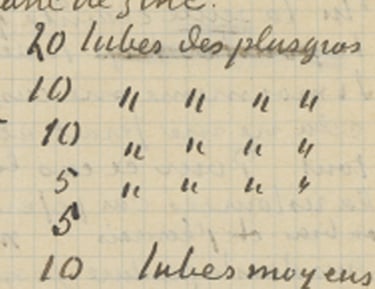 20 tubes des plus gros
10 " " " "
10 " " " "
5 " " " "
5
10 tubes moyens